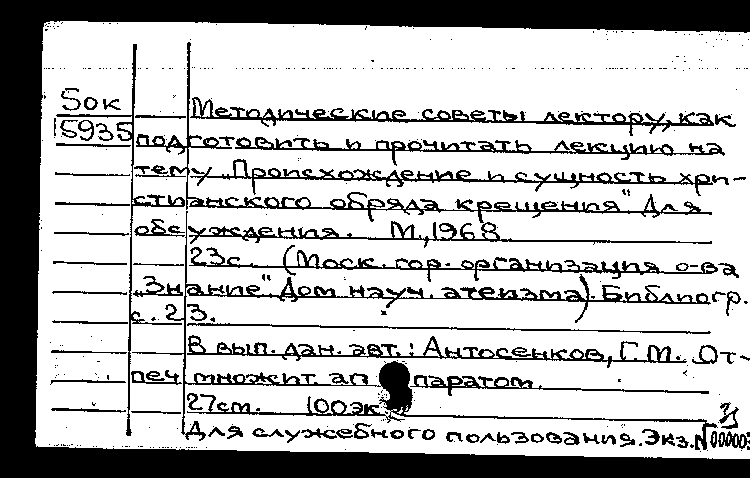 5ок
15935
Методические советы лектору, как
подготовить и прочитать лекцию на
тему „Происхождение и сущность хри-
стианского обряда крещения" Для
обсуждения. М., 1968
23с. (Моск. гор. организация о-ва
„Знание" Дом науч. атеизма). Библиогр.
с. 23.
В вып. дан. авт.: Антосенков, Г.М. От-
печ множит. ап паратом.
27см. 100эк
Для служебного пользования. Экз.№